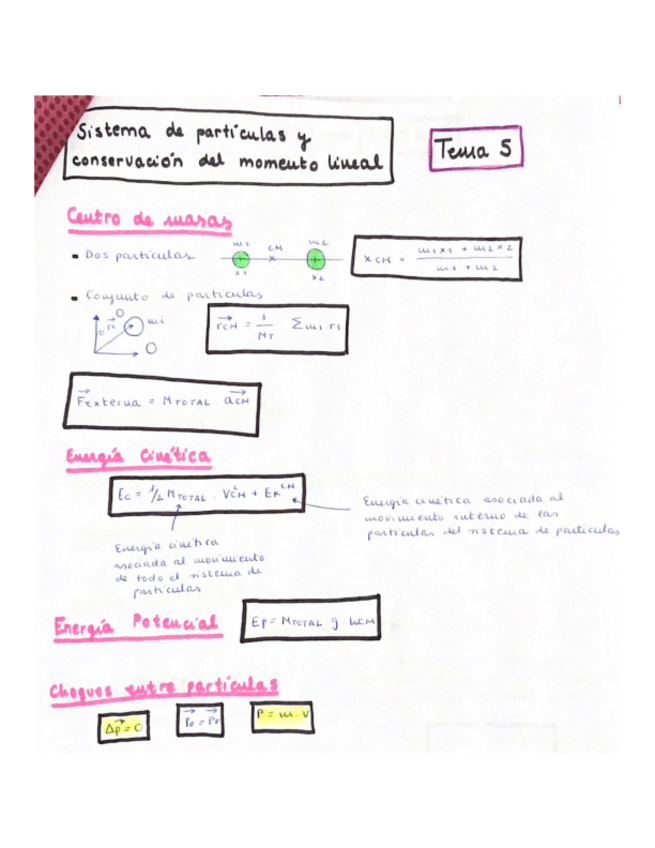 Sistema de partículas y
conservación del momento lineal
Tema 5
Centro de masas
- Dos partículas
m1 CM m2
x1 x2
xCM = m1x1 + m2x2 / m1 + m2
- Conjunto de partículas
ri mi
rCM = 1/MT · Σmi ri
Fexterna = MTOTAL · aCM
Energía Cinética
Ec = 1/2 MTOTAL · VCM² + EK^CM
Energía cinética asociada al
movimiento interno de las
partículas del sistema de partículas
Energía cinética
asociada al movimiento
de todo el sistema de
partículas
Energía Potencial
EP = MTOTAL g · hCM
Choques entre partículas
Δp = 0
Po = PF
P = m · v